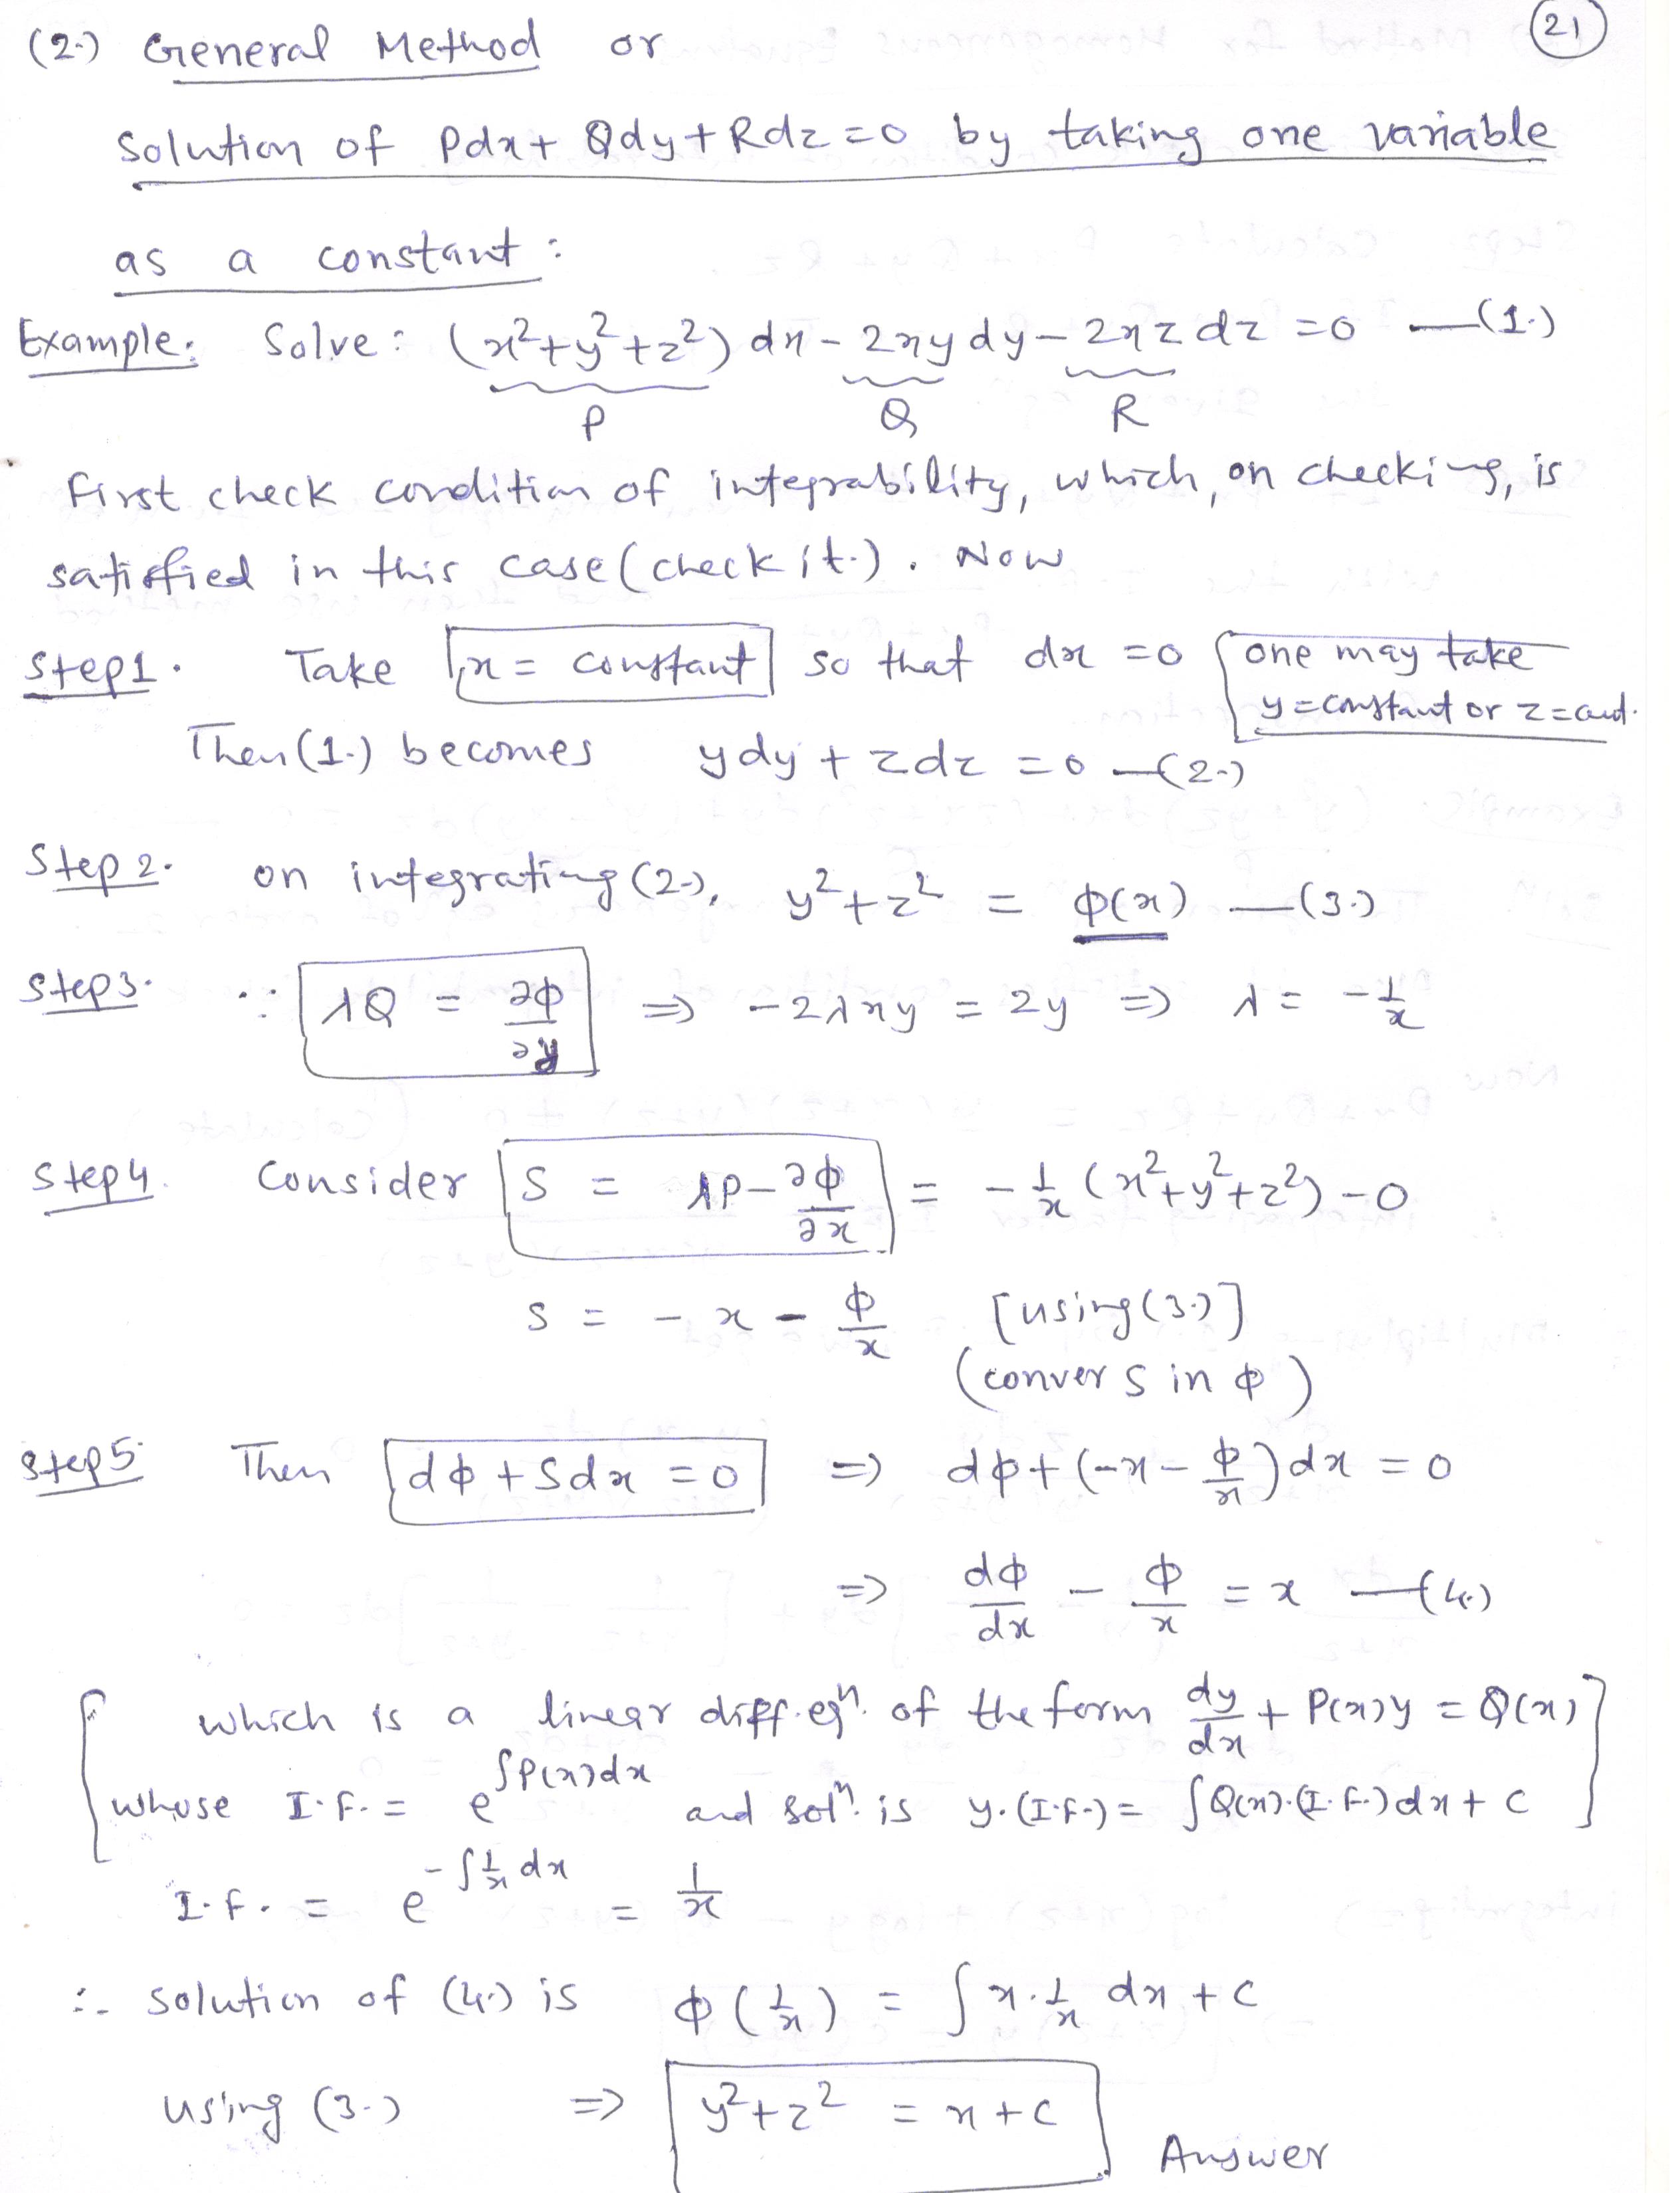 (21)
(2.) General Method or
solution of Pdx + Qdy + Rdz = 0 by taking one variable
as a constant :
Example: Solve : (x²+y²+z²) dx - 2xy dy - 2xz dz = 0 —(1.)
P Q R
First check condition of integrability, which, on checking, is
satisfied in this case (check it.). Now
Step1. Take x = constant so that dx = 0 one may take
y = constant or z = const.
Then (1.) becomes ydy + zdz = 0 —(2.)
Step 2. on integrating (2.), y² + z² = ϕ(x) —(3.)
Step3. ∵ λQ = ∂ϕ/∂y ⇒ -2λxy = 2y ⇒ λ = -1/x
Step4. Consider S = λP - ∂ϕ/∂x = -1/x (x²+y²+z²) - 0
S = - x - ϕ/x [using (3.)]
(conver S in ϕ)
Step5. Then dϕ + Sdx = 0 ⇒ dϕ + (-x - ϕ/x) dx = 0
⇒ dϕ/dx - ϕ/x = x —(4.)
[which is a linear diff. eqⁿ. of the form dy/dx + P(x)y = Q(x)
whose I.F. = e^∫P(x)dx and solⁿ. is y.(I.F.) = ∫Q(x).(I.F.)dx + c]
I.F. = e^-∫1/x dx = 1/x
∴ solution of (4.) is ϕ(1/x) = ∫x.1/x dx + c
using (3.) ⇒ y² + z² = x + c
Answer